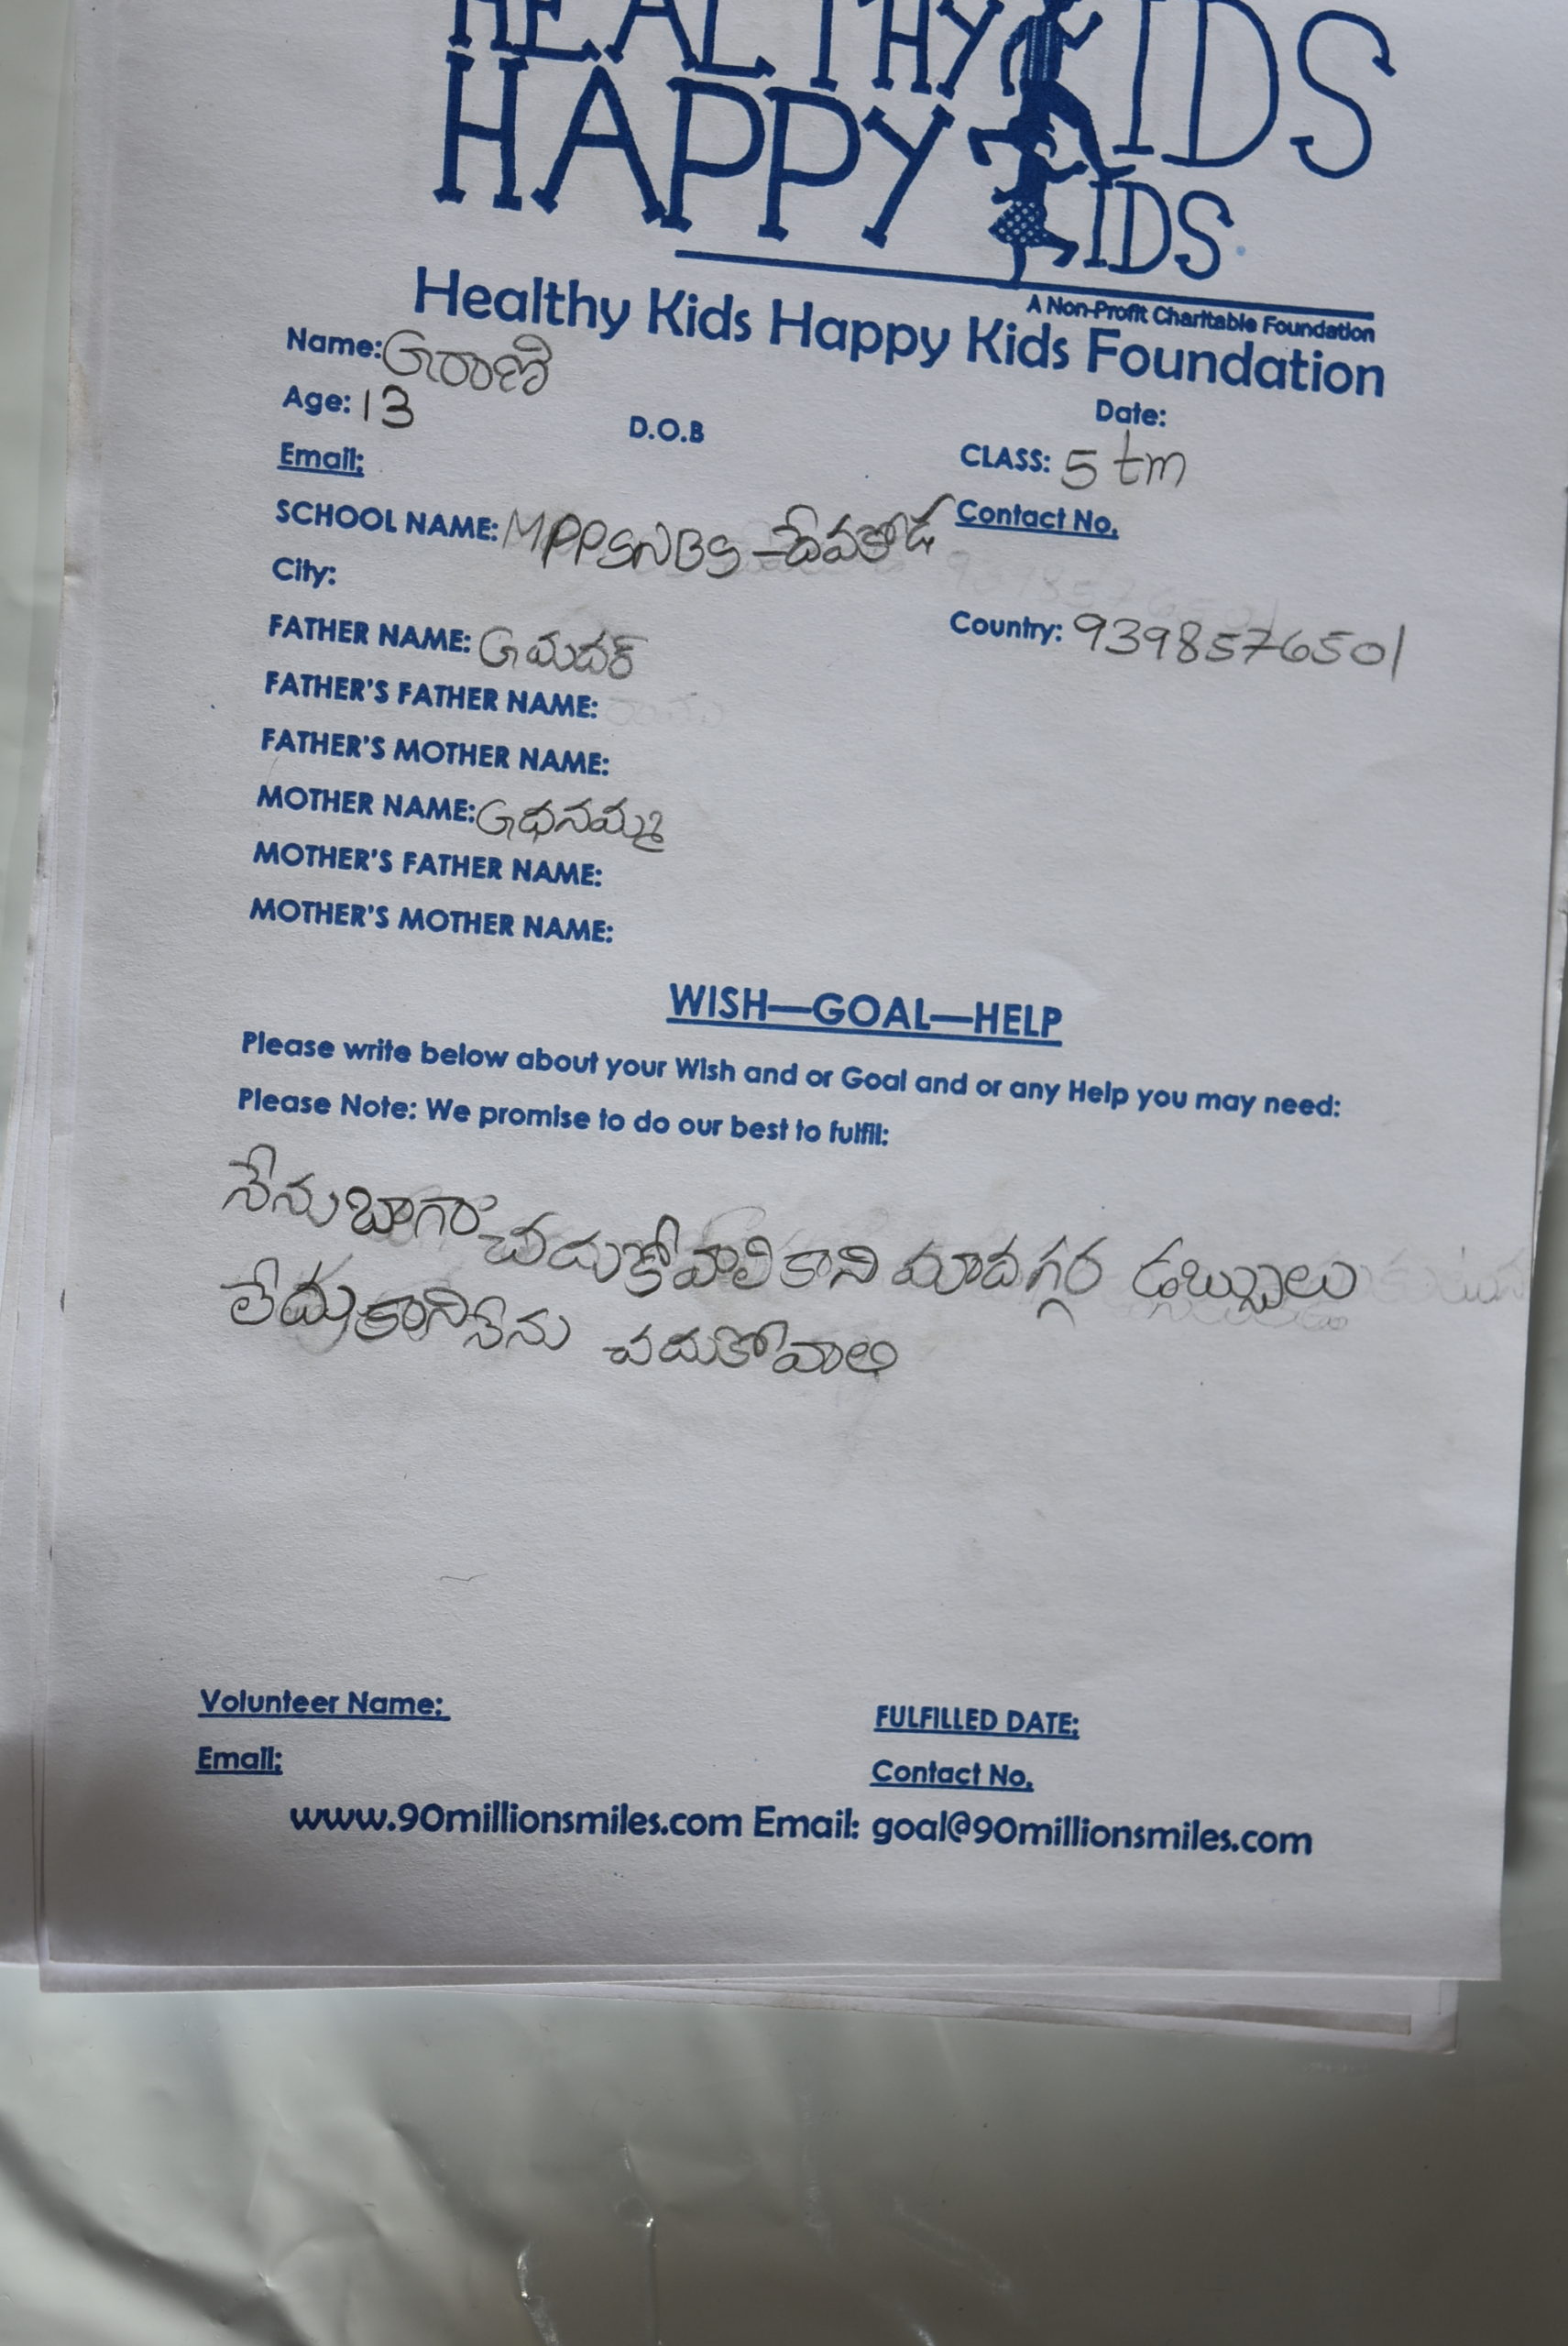 HEALTHY KIDS
HAPPY KIDS
A Non-Profit Charitable Foundation
Healthy Kids Happy Kids Foundation
Name: G రాణి
Date:
Age: 13 D.O.B CLASS: 5 tm
Email:
SCHOOL NAME: MPPSNBS - దేవతోడు Contact No.
City: Country: 9398576501
FATHER NAME: G మదర్
FATHER'S FATHER NAME:
FATHER'S MOTHER NAME:
MOTHER NAME: G ధనమ్మ
MOTHER'S FATHER NAME:
MOTHER'S MOTHER NAME:
WISH—GOAL—HELP
Please write below about your Wish and or Goal and or any Help you may need:
Please Note: We promise to do our best to fulfil:
నేను బాగా చదుకోవాలి కాని మాదగ్గర డబ్బులు
లేదు కాని నేను చదుకోవాలి
Volunteer Name: FULFILLED DATE:
Email: Contact No.
www.90millionsmiles.com Email: goal@90millionsmiles.com